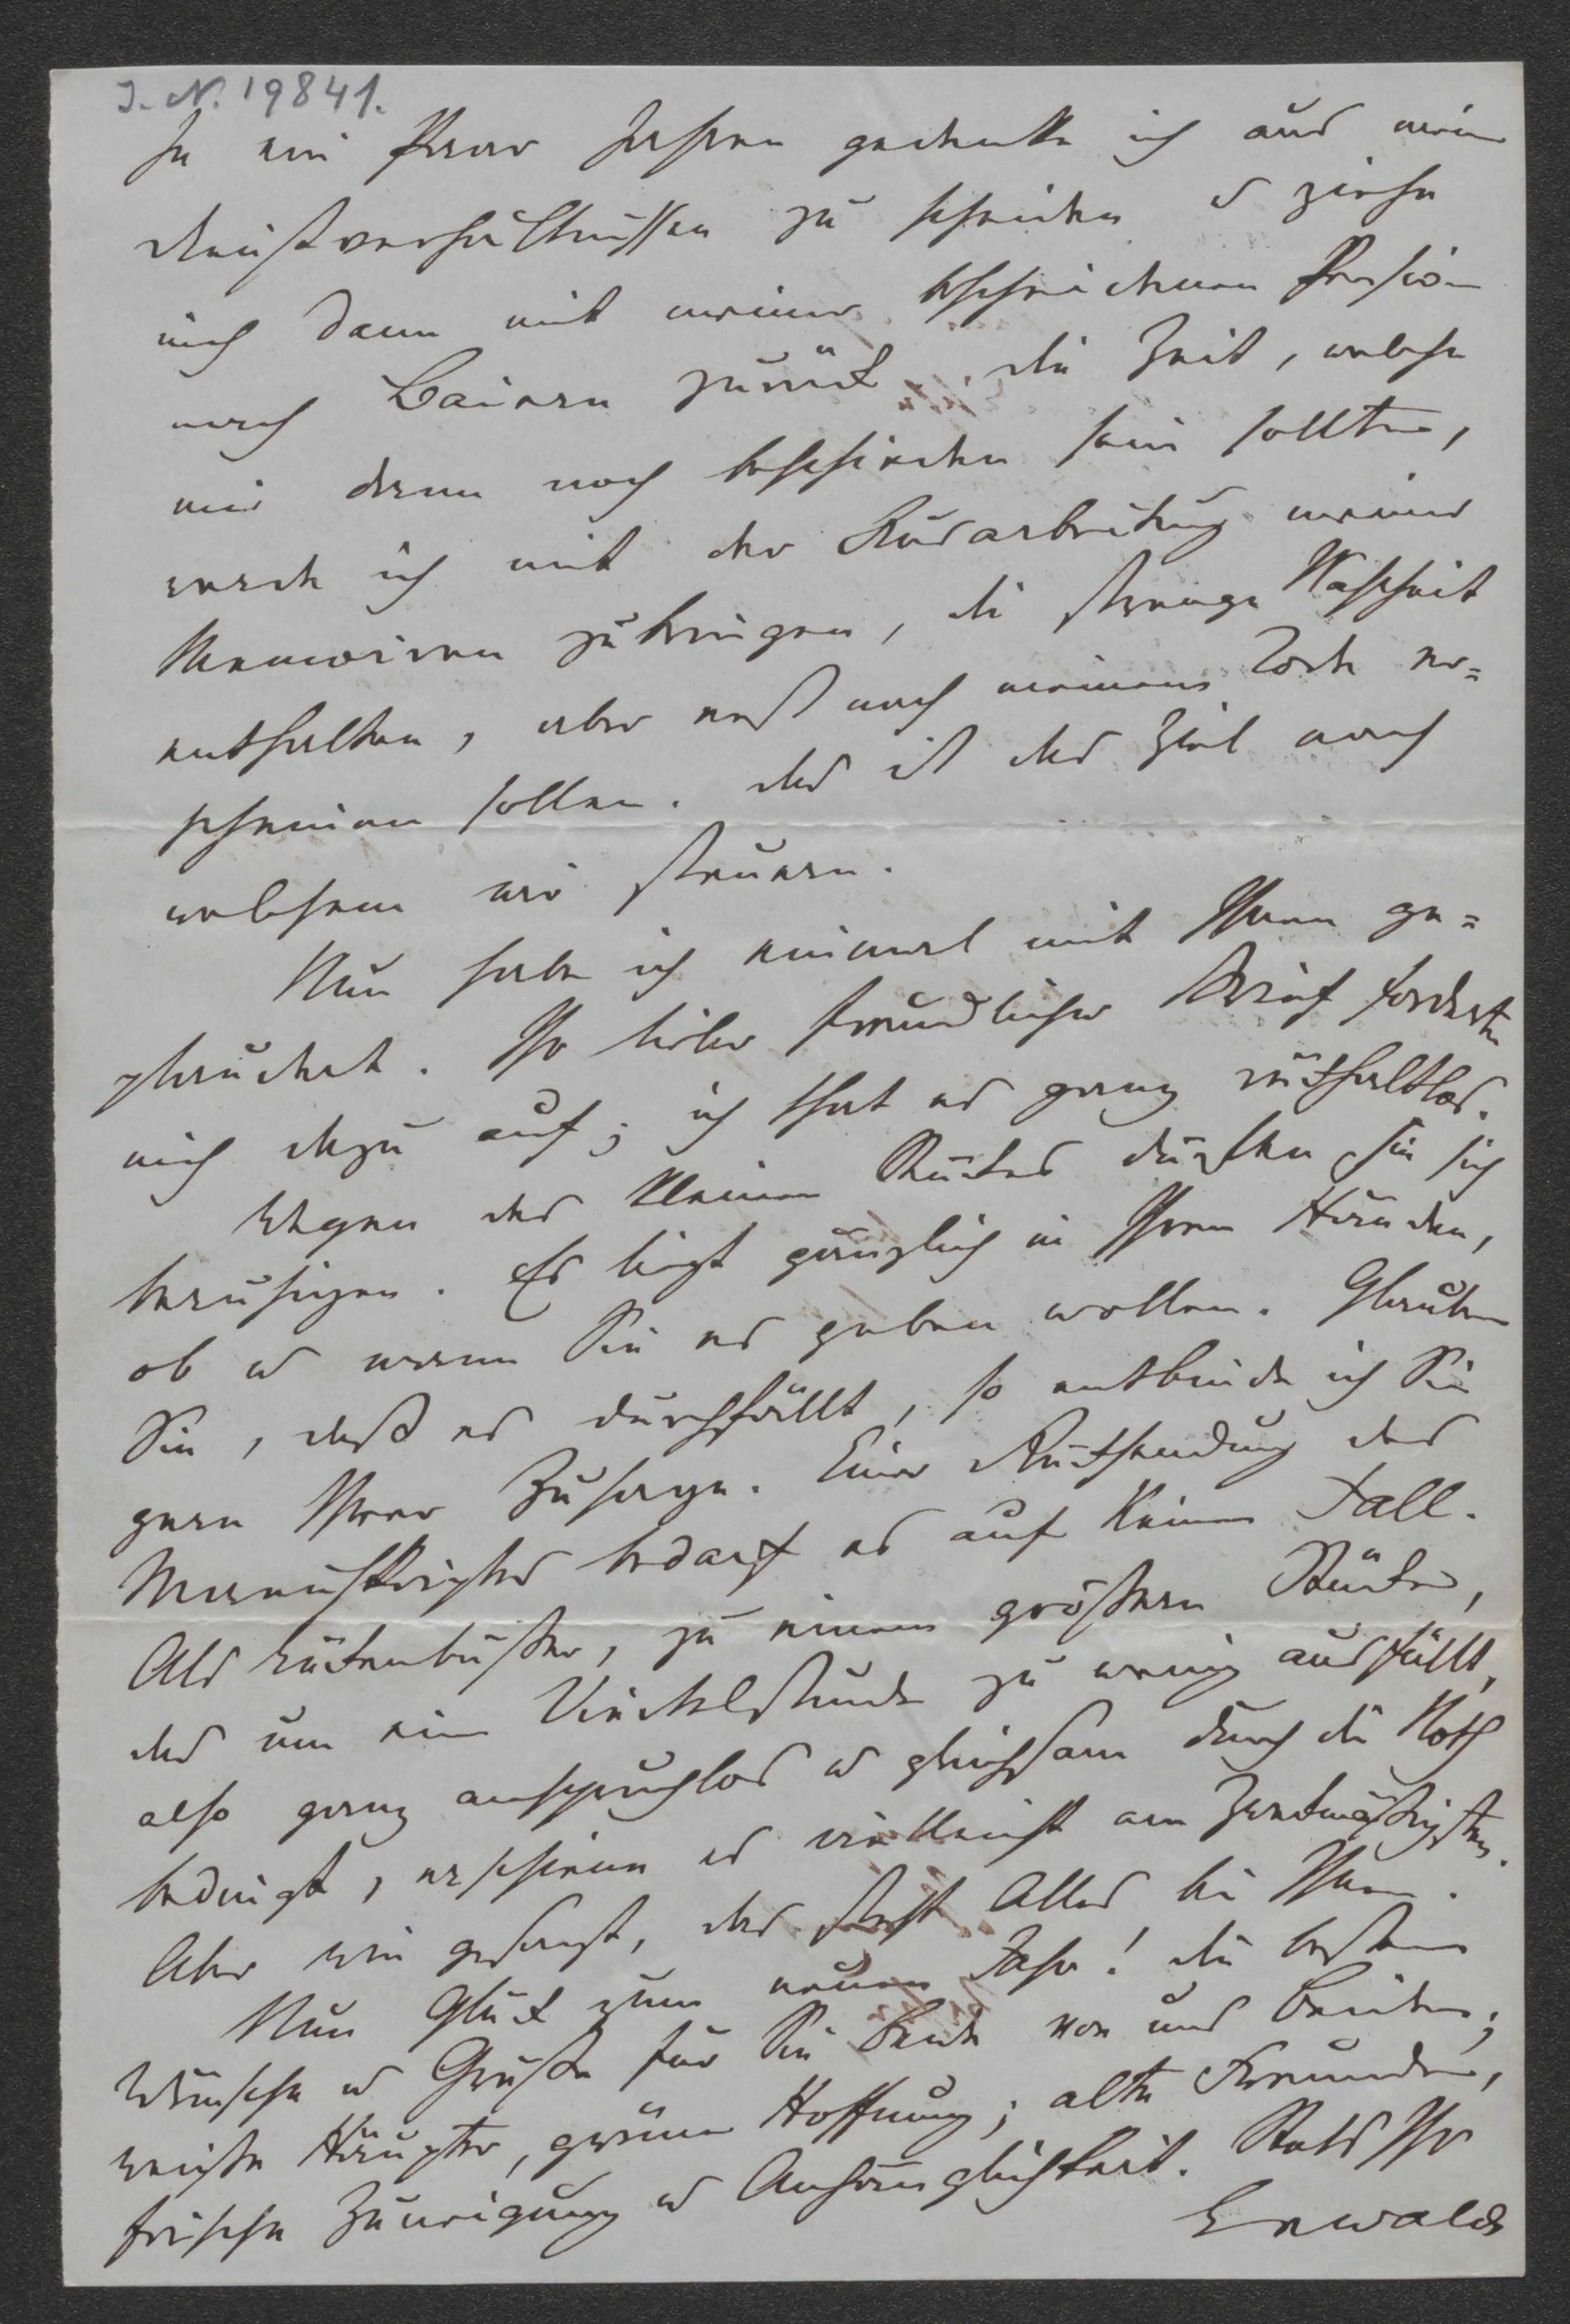 I. N. 19841.
In ein Paar Jahren gedenke ich aus mein
Dienstverhältnissen zu scheiden u ziehe
mich dann mit meiner bescheidenen Pension
nach Baiern zurück. Die Zeit, welche
mir dann noch beschieden sein sollte,
werde ich mit der Ausarbeitung meiner
Memoiren zubringen, die strenge Wahrheit
enthalten, aber erst nach meinem Tode er=
scheinen sollen. Das ist das Ziel nach
welchem wir steuern.
Nun habe ich einmal mit Ihnen ge=
plaudert. Ihr lieber freundlicher Brief forderte
mich dazu auf; ich that es ganz rückhaltlos.
Wegen des kleinen Stückes dürfen Sie sich
beruhigen. Es liegt gänzlich in Ihren Händen,
ob u wann Sie es geben wollen. Glauben
Sie, daß es durchfällt, so entbinde ich Sie
gern Ihrer Zusage. Einer Rücksendung des
Manuskriptes bedarf es auf keinen Fall.
Als Lückenbüßer, zu einem größern Stücke,
das um eine Viertelstunde zu wenig ausfüllt,
also ganz anspruchlos u gleichsam durch die Noth
bedingt, erschiene es vielleicht am Zweckmäßigsten.
Aber wie gesagt, das steht Alles bei Ihnen.
Nun Glück zum neuen Jahr! Die besten
Wünsche u Grüße für Sie Beide von uns Beiden;
weiße Häupter, grüne Hoffnung; alte Freunde,
frische Zuneigung u Anhänglichkeit. Stets Ihr
Lewald